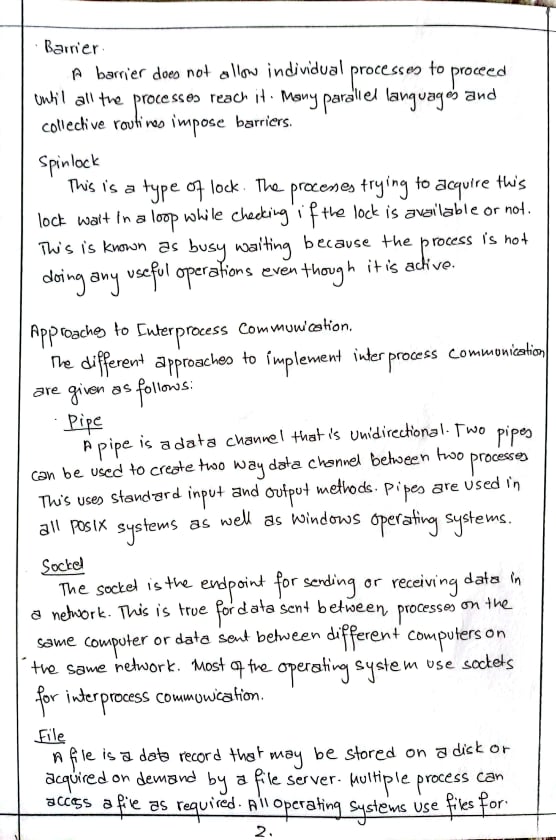 Barrier.
A barrier does not allow individual processes to proceed
until all the processes reach it. Many parallel languages and
collective routines impose barriers.
Spinlock
This is a type of lock. The processes trying to acquire this
lock wait in a loop while checking if the lock is available or not.
This is known as busy waiting because the process is not
doing any useful operations even though it is active.
Approaches to Interprocess Communication.
The different approaches to implement interprocess communication
are given as follows:
Pipe
A pipe is a data channel that is unidirectional. Two pipes
can be used to create two way data channel between two processes
This uses standard input and output methods. Pipes are used in
all POSIX systems as well as windows operating systems.
Socket
The socket is the endpoint for sending or receiving data in
a network. This is true for data sent between, processes on the
same computer or data sent between different computers on
the same network. Most of the operating system use sockets
for interprocess communication.
File
A file is a data record that may be stored on a dick or
acquired on demand by a file server. Multiple process can
access a fie as required. All operating systems use files for.
2.